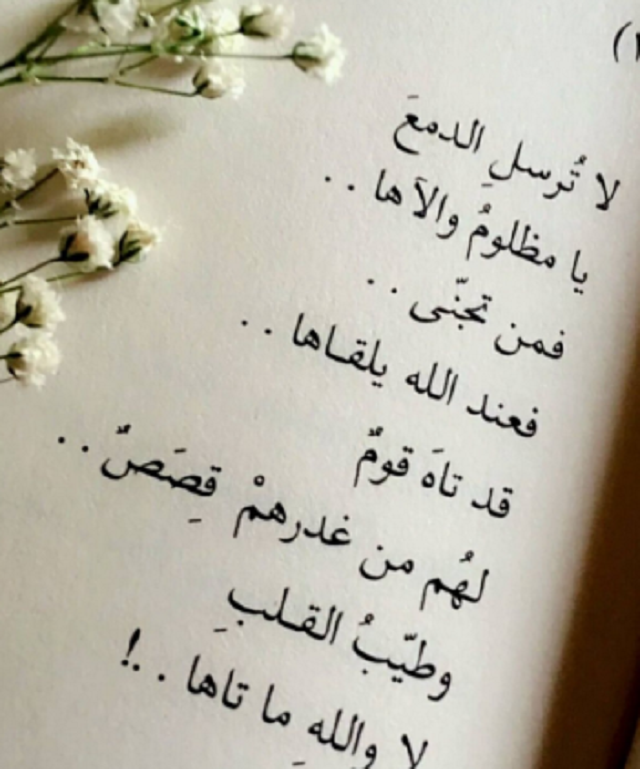 لا تُرسلِ الدمعَ
يا مظلومُ والآها . .
فمن تجنّى . .
فعند الله يلقاها . .
قد تاهَ قومٌ
لهُم من غدرهمْ قِصَصٌ . .
وطيّبُ القلبِ
لا واللهِ ما تاها . . !